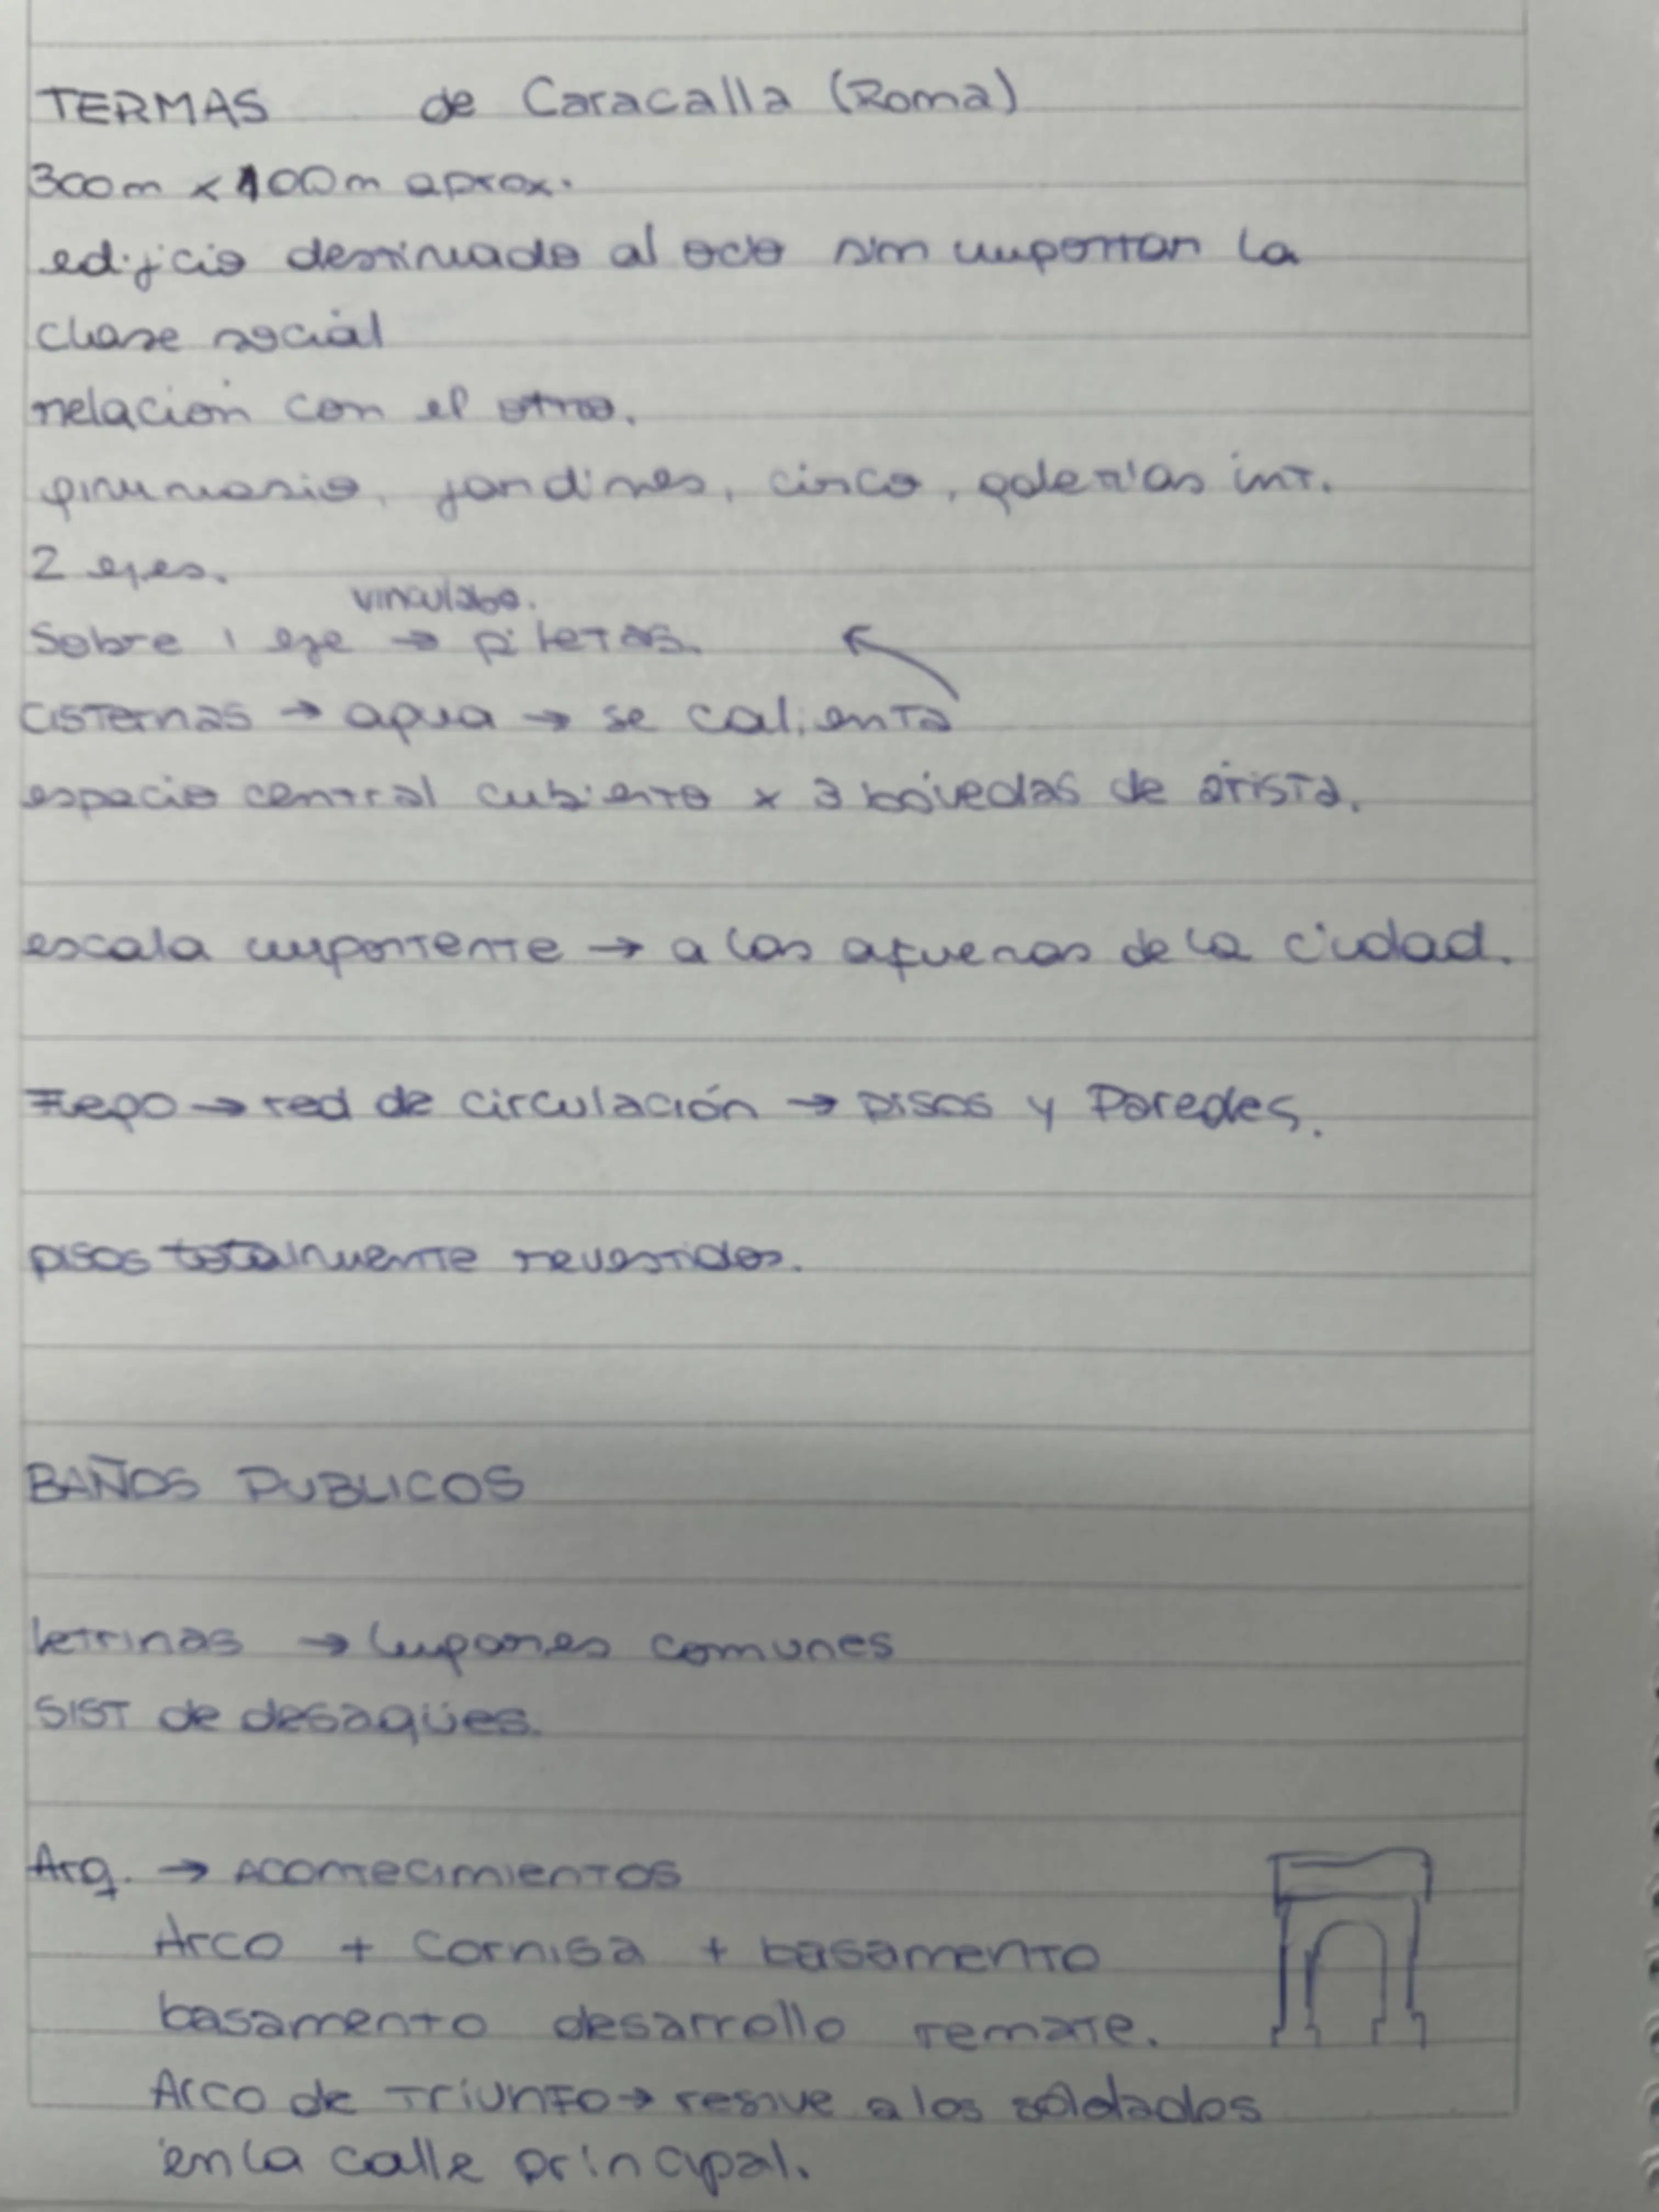 TERMAS de Caracalla (Roma)
300m x 100m aprox.
edificio destinado al ocio sin importar la
clase social
relación con el otro.
gimnasio, jardines, circo, galerías int.
2 ejes.
vinculabo.
Sobre 1 eje → piletas.
cisternas → agua → se calienta
espacio central cubierto x 3 bóvedas de arista.
escala importante → a las afueras de la ciudad.
→ red de circulación → pisos y Paredes.
pisos totalmente revestidos.
BAÑOS PUBLICOS
letrinas → lugares comunes
SIST de desagües.
Arq. → Acontecimientos
Arco + Cornisa + basamento
basamento desarrollo remate.
Arco de Triunfo → resive a los soldados
en la calle principal.